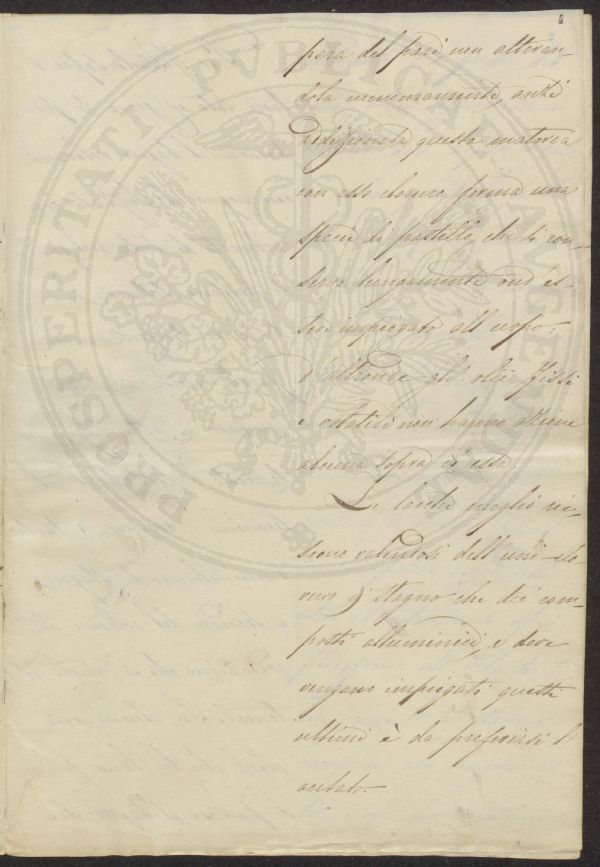 para del pari non alteran-
dola menomamente, anzi
addizionata questa materia
con esso cloruro forma una
specie di pastello, che si con-
serva lungamente ond'es-
ser impiegato all'uopo:
D'altronde gli olii fissi
e volatili non hanno azione
alcuna sopra di esta.
Le lacche meglio rie-
scono valendosi dell'
ruro di Stagno che dei com-
posti alluminici, e dove
vengano impiegati questi
ultimi è da preferirsi l'
acetato.
PROSPERITATI PVBLICAE AVGENDAE